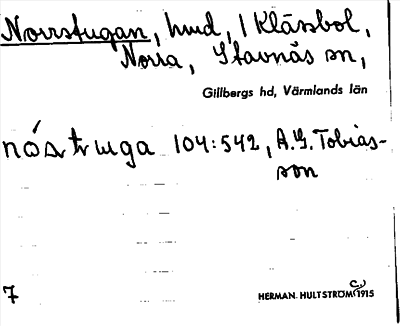 Norrstugan, hmd, i Klässbol,
Norra, Stavnäs sn,
Gillbergs hd, Värmlands län
nóstruga 104:542, A.G. Tobias-
son
7
HERMAN HULTSTRÖM (C.) 1915